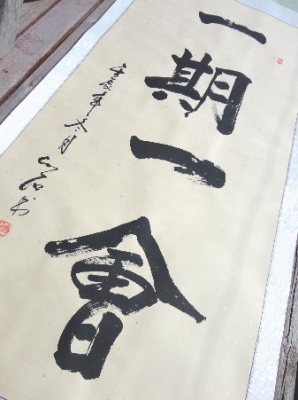 一期一會
年冬月